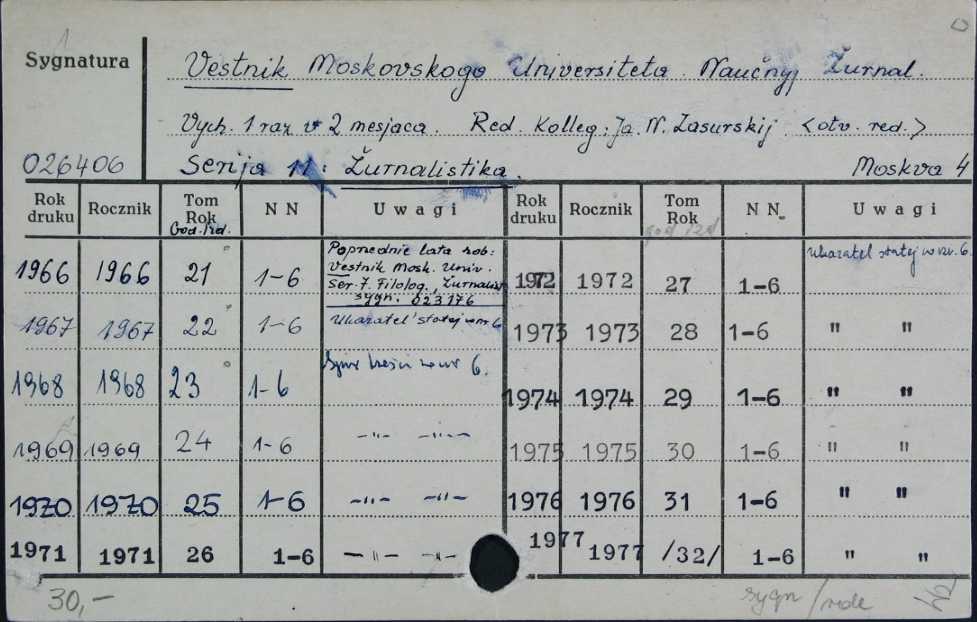 Sygnatura Vestnik Moskovskogo Universiteta. Naučnyj Žurnal.
Vych. 1 raz v 2 mesjaca. Red. Kolleg.: Ja. N. Zasurskij <otv. red.>
026406 Serija 11: Žurnalistika. Moskva 4
Rok druku Rocznik Tom Rok God. Izd. N N Uwagi Rok druku Rocznik Tom Rok god izd N N Uwagi
1966 1966 21 1-6 Poprzednie lata zob: Vestnik Mosk. Univ. Ser. 7. Filolog., Žurnalist sygn. 023176 1972 1972 27 1-6 Ukazatel statej w nr. 6.
1967 1967 22 1-6 Ukazatel' statej w nr 6 1973 1973 28 1-6 " "
1968 1968 23 1-6 treści w nr 6. 1974 1974 29 1-6 " "
1969 1969 24 1-6 -"- -"- 1975 1975 30 1-6 " "
1970 1970 25 1-6 -"- -"- 1976 1976 31 1-6 " "
1971 1971 26 1-6 -"- -"- 1977 1977 /32/ 1-6 " "
30,- sygn/